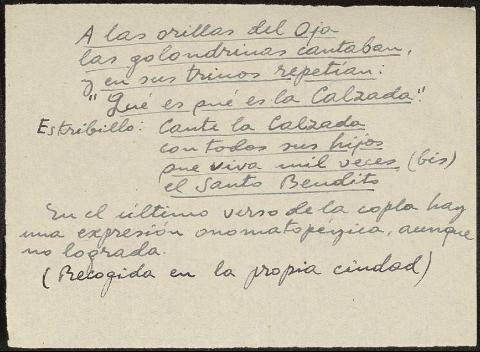 A las orillas del Oja
las golondrinas cantaban,
y en sus trinos repetían:
"Qué es qué es la Calzada".
Estribillo: Cante la Calzada
con todos sus hijos
que viva mil veces (bis)
el Santo Bendito
En el último verso de la copla hay
una expresión onomatopéyica, aunque
no lograda.
(Recogida en la propia ciudad)